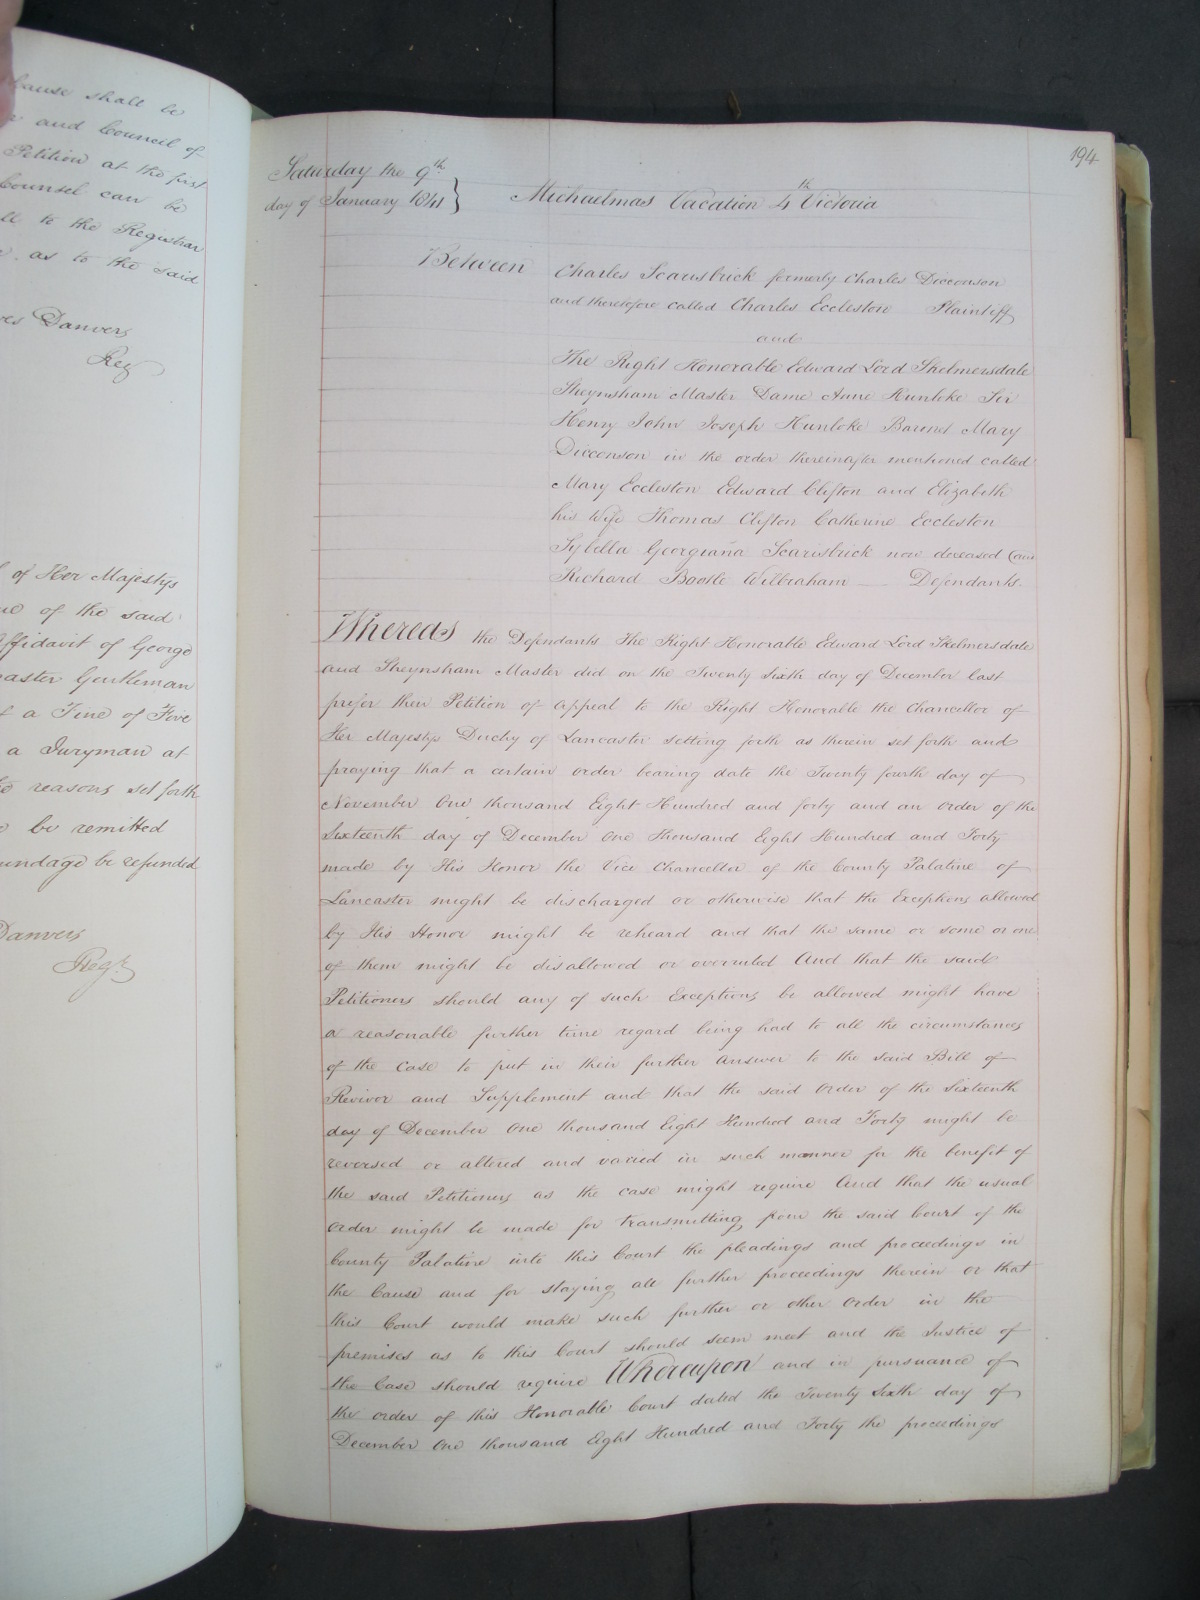 Cause shall be
and Council of
Petition at the first
Counsel can be
to the Registrar
as to the said
Danvers
Reg
of Her Majestys
of the said
Affidavit of George
Gentleman
of a Fine of Five
a Juryman at
reasons set forth
be remitted
be refunded
Danvers
Regr
194
Saturday the 9th
day of January 1841
Michaelmas Vacation 4th Victoria
Between
Charles Scarisbrick formerly Charles Dicconson
and theretofore called Charles Eccleston Plaintiff
and
The Right Honorable Edward Lord Skelmersdale
Streynsham Master Dame Anne Hunloke Sir
Henry John Joseph Hunloke Baronet Mary
Dicconson in the order thereinafter mentioned called
Mary Eccleston Edward Clifton and Elizabeth
his Wife Thomas Clifton Catherine Eccleston
Sybella Georgiana Scarisbrick now deceased and
Richard Bootle Wilbraham Defendants.
Whereas the Defendants The Right Honorable Edward Lord Skelmersdale
and Streynsham Master did on the Twenty sixth day of December last
prefer their Petition of appeal to the Right Honorable the Chancellor of
Her Majestys Duchy of Lancaster setting forth as therein set forth and
praying that a certain order bearing date the Twenty fourth day of
November One thousand Eight Hundred and forty and an order of the
Sixteenth day of December One thousand Eight Hundred and Forty
made by His Honor the Vice Chancellor of the County Palatine of
Lancaster might be discharged or otherwise that the Exceptions allowed
by His Honor might be reheard and that the same or some or one
of them might be disallowed or overruled And that the said
Petitioners should any of such Exceptions be allowed might have
a reasonable further time regard being had to all the circumstances
of the Case to put in their further Answer to the said Bill of
Revivor and Supplement and that the said Order of the Sixteenth
day of December One thousand Eight Hundred and Forty might be
reversed or altered and varied in such manner for the benefit of
the said Petitioners as the case might require And that the usual
Order might be made for transmitting from the said Court of the
County Palatine into this Court the pleadings and proceedings in
the Cause and for staying all further proceedings therein or that
this Court would make such further or other Order in the
premises as to this Court should seem meet and the Justice of
the Case should require Whereupon and in pursuance of
the order of this Honorable Court dated the Twenty Sixth day of
December One thousand Eight Hundred and Forty the proceedings